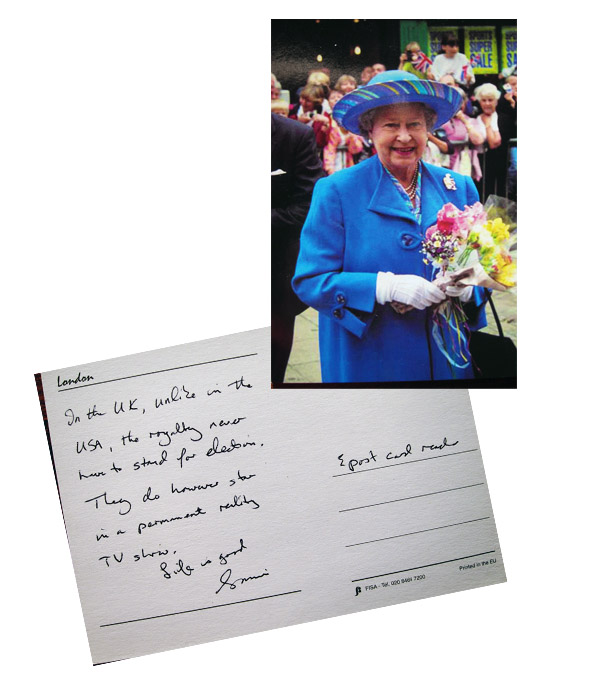 SPORTS
SUPER
SALE
London
In the UK, unlike in the
USA, the royalty never
have to stand for election.
They do however star
in a permanent reality
TV show.
Life is good
post card reader
FISA - Tel. 020 8464 7200
Printed in the EU